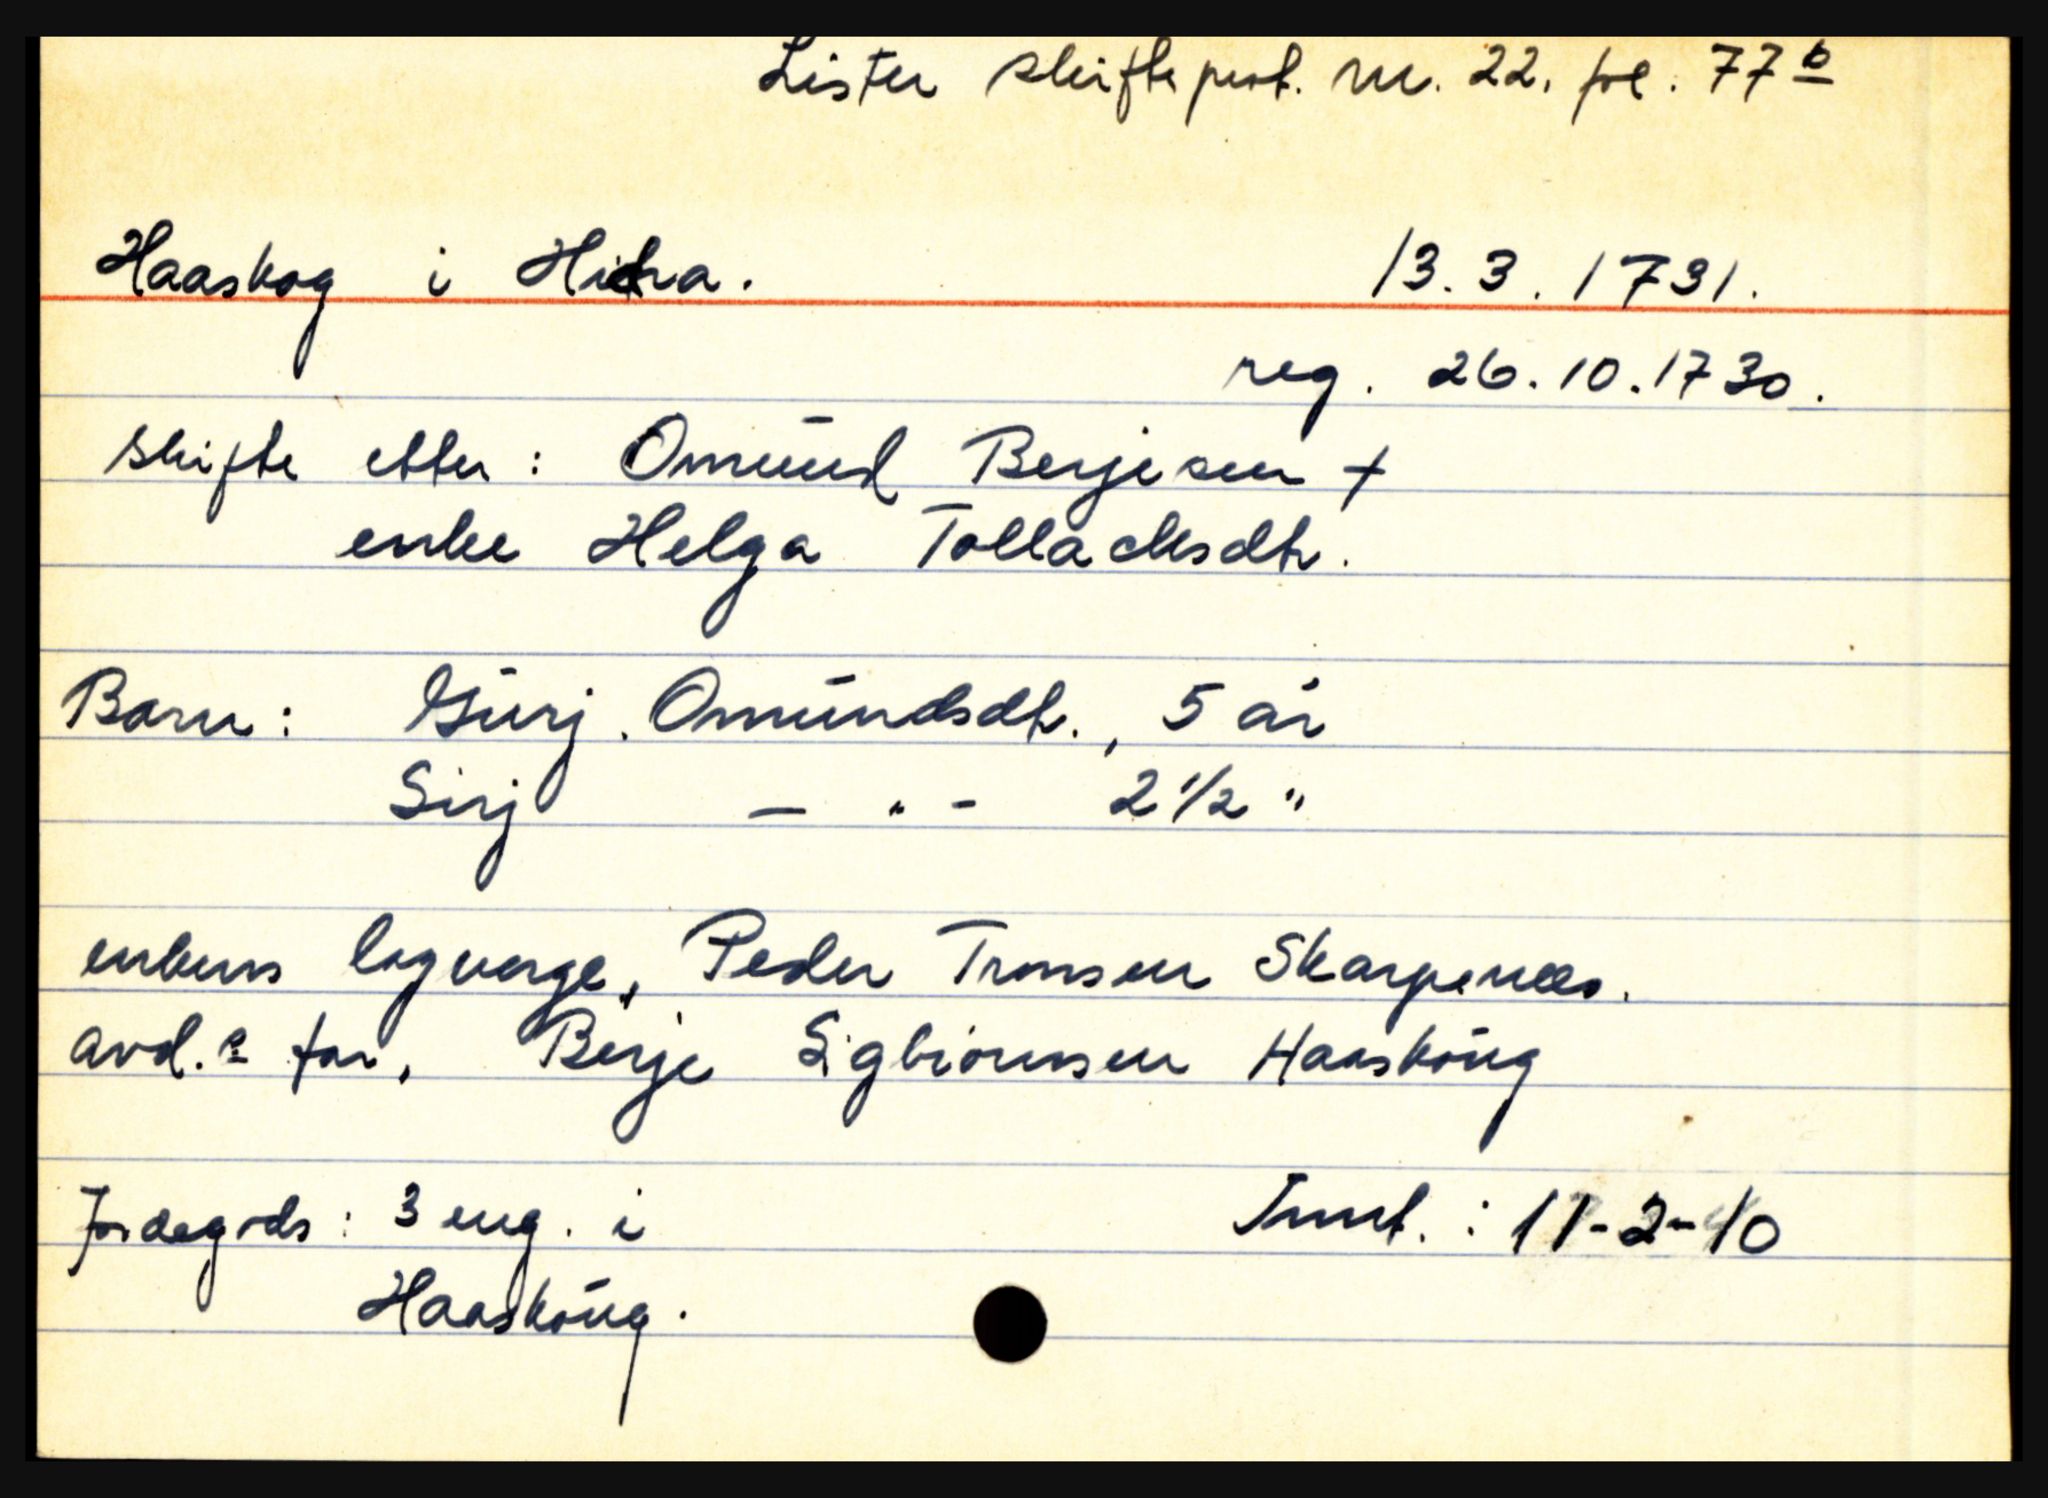 Lister skifteprot. nr. 22. fol. 77 b
Haaskog i Hidra. 13.3.1731.
reg. 26.10.1730.
skifte etter: Omund Berjesen +
enke Helga Tollachsdtr.
Barn: Gurj. Omundsdtr., 5 år
Sirj — " - 2 1/2 "
enkens lagverge, Peder Tronsen Skarpenes.
avd.s far, Berje Sigbiornsen Haaskoug
Jordegods: 3 eng. i
Haaskoug.
Innt.: 11-2-10